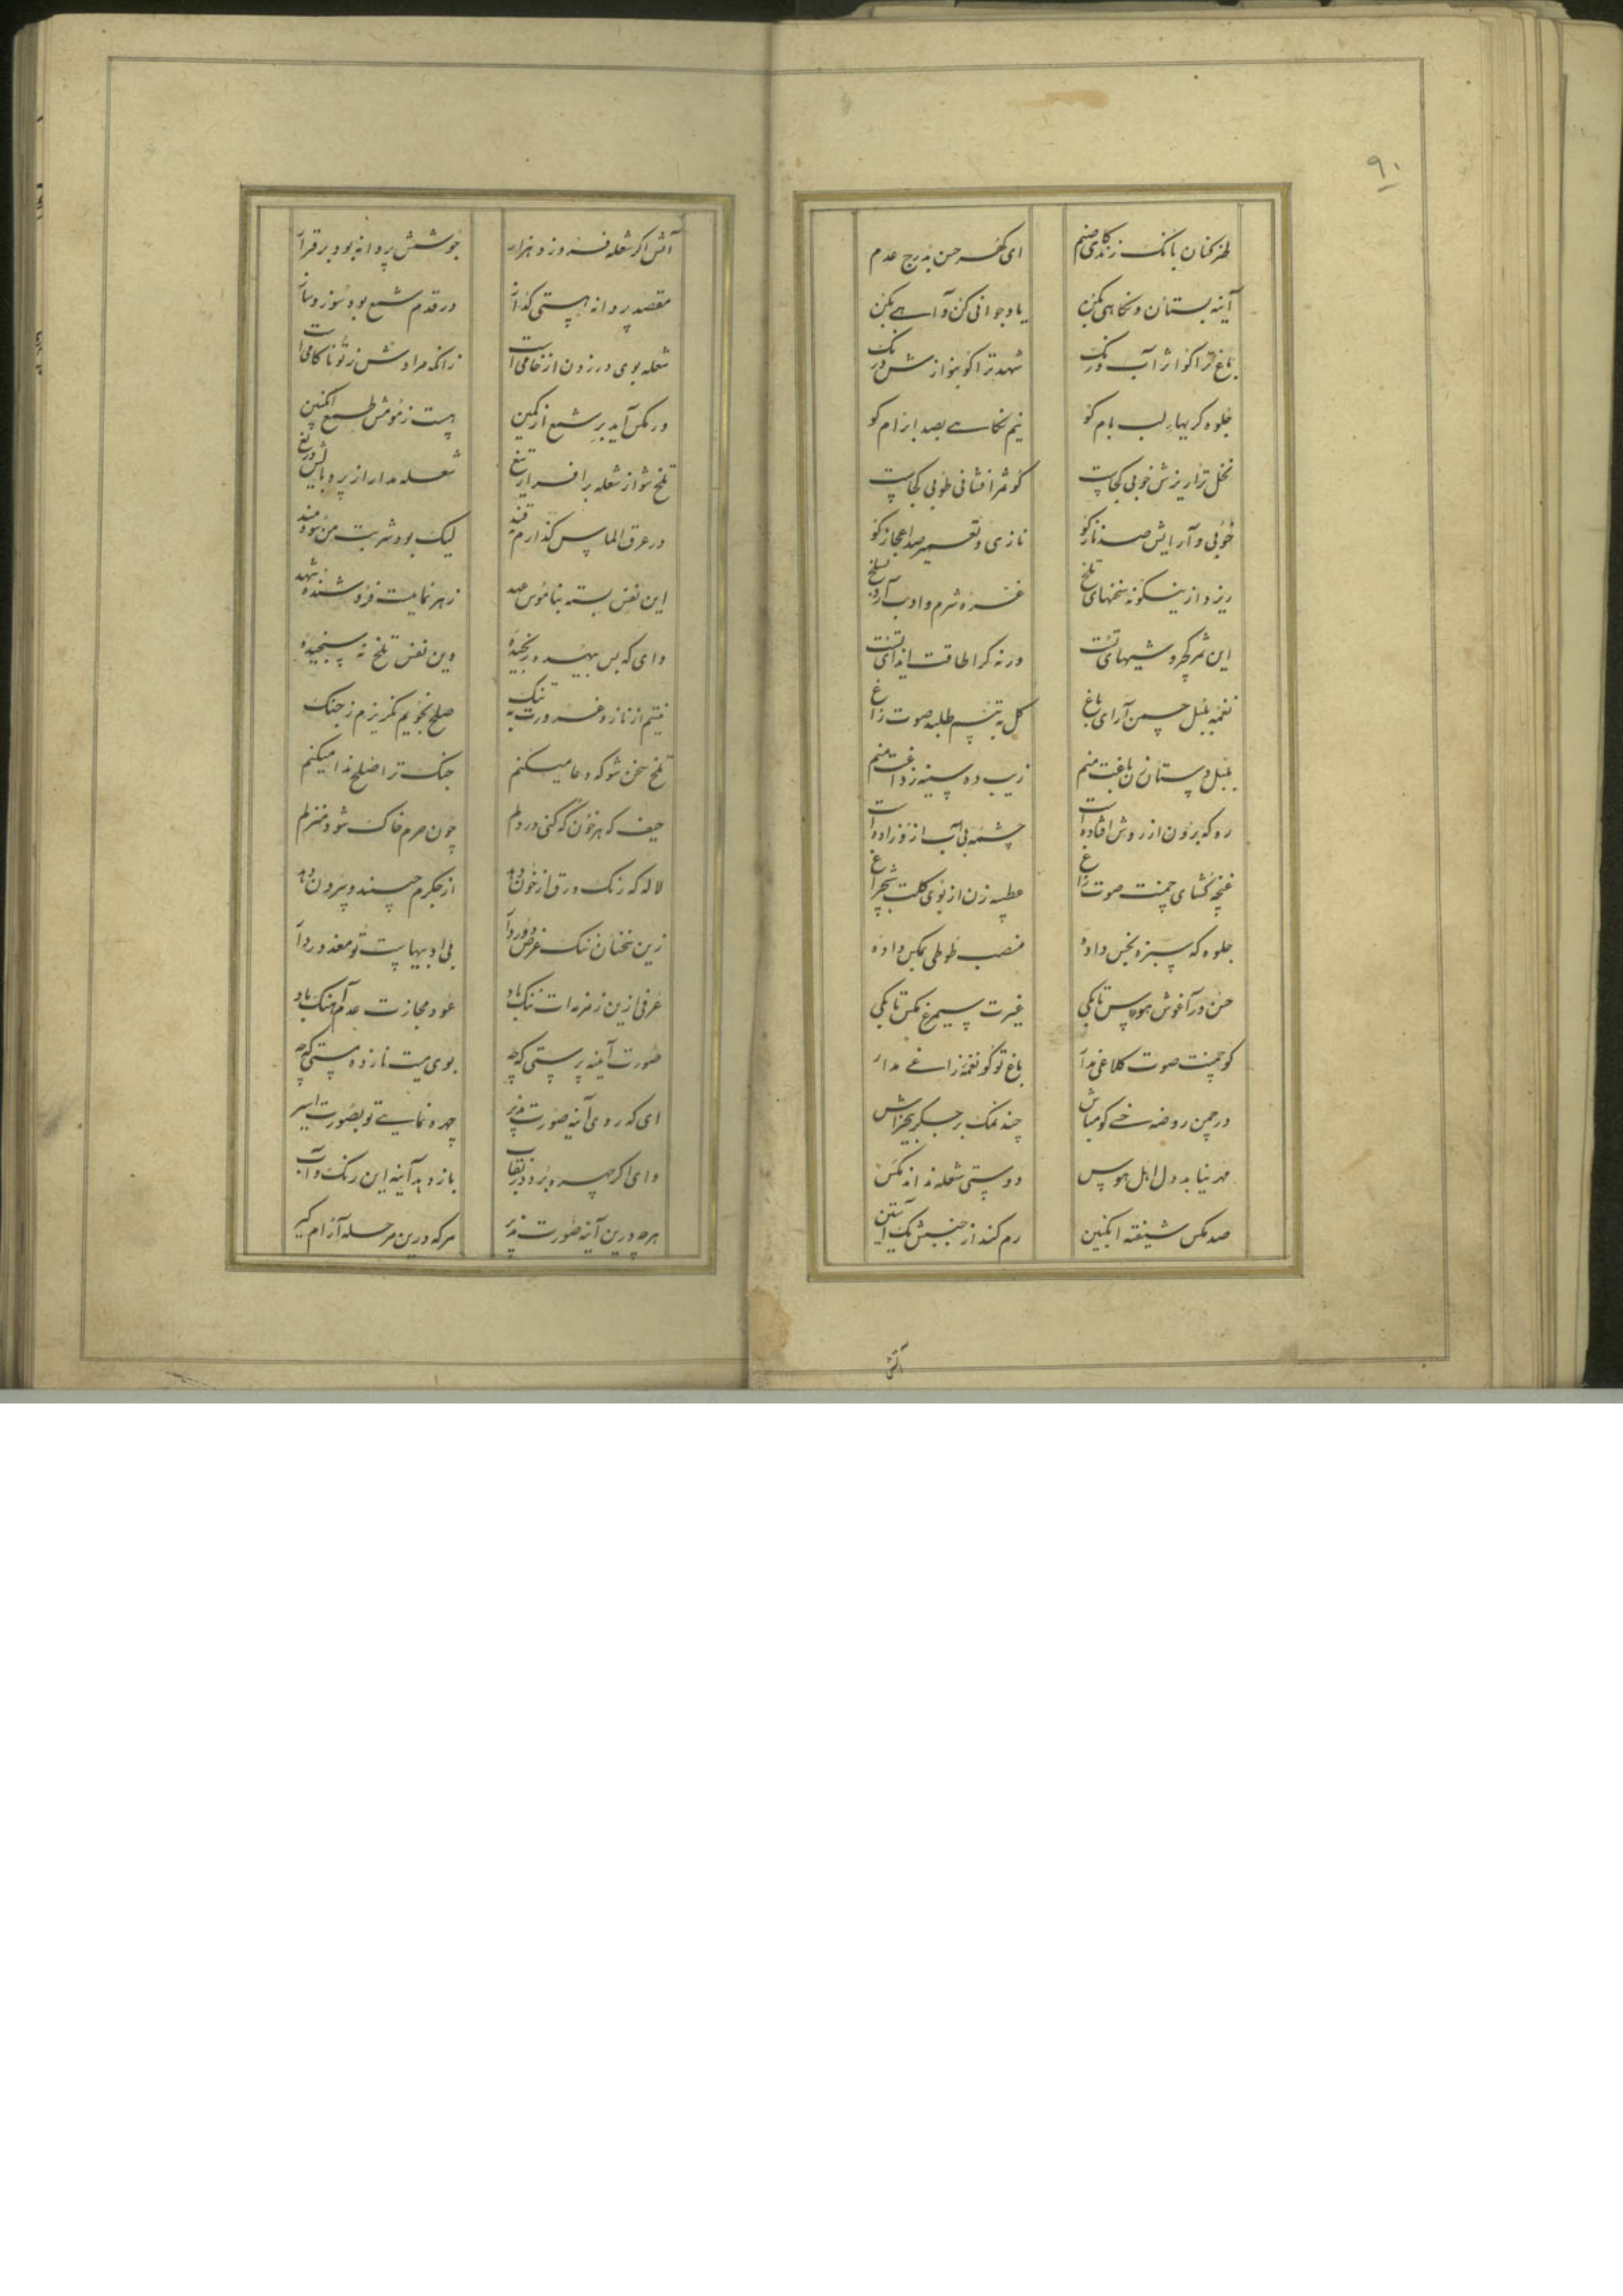 ۹۰
طنز کنان بانک زند کای صنم ای کهر حسن بدرج عدم
آینه بستان و نکاهی بکن یاد جوانی کن و آهی بکن
باغ ترا کو اثر آب و رنک شهد ترا کو
جلوه کریهای لب بام کو نیم نکاهی بصد ابرام کو
نخل ترا ریزش خوبی کجاست کو ثمر افشانی طوبی کجاست
خوبی و آرایش صد ناز کو نازی و تعمیر صد اعجاز کو
ریزد ازینکونه سخنهای تلخ غمزه شرم و ادب
این ثمر کجروشیهای تست ورنه کرا طاقت ایذای تست
نغمه بلبل چمن آرای باغ کل به تبسم طلبد صوت زاغ
بلبل دستان زن باغت منم زیب ده سینه ز داغت منم
رو که برون از روش افتاده است چشمه بی آب
غنچه کشای چمنت صوت زاغ عطسه زن از بوی کلت
جلوه که سبزه بخس داده منصب طوطی بمکس داده
حسن در آغوش هوس تا بکی غیرت سیمرغ مکس تا بکی
کو چمنت صوت کلاغی مدار باغ تو کو نغمه زاغی مدار
در چمن روضه خسی کو مباش چند نمک بر جکر
مهر نیابد دل اهل هوس دوستی شعله نداند مکس
صد مکس شیفته انکبین رم کند از جنبش یک آستین
آتش
آتش اکر شعله فروزد هزار جوشش پروانه بود برقرار
مقصد پروانه هستی کداز در قدم شمع بود سوز و ساز
شعله بوی در زدن از خامی است زانکه مرادش ز تو ناکامی است
ور مکس آید بر شمع از کمین هست ز مومش طمع انکبین
تلخ شو از شعله برافراز تیغ شعله مدار از پر و بالش دریغ
در عرق الماس کدازم قند لیک بود شربت من سودمند
این نفس بسته بناموس عهد زهر نمایست فروشنده شهد
وای که بس بیهده رنجیده وین نفس تلخ نه سنجیده
نیستم از ناز و غرورت به تنک صلح نجویم نکریزم ز جنک
تلخ سخن شو که دعا میکنم جنک ترا صلح ندا میکنم
حیف که هر خون که کنی در دلم چون حرم خاک شود منزلم
لاله که رنک ورق از خون دهد از جکرم چیند و بیرون دهد
زین سخنان ننک غرض دور دار بی ادبیهاست تو معذور دار
عرفی ازین زمزمه ات ننک باد عود مجازت عدم آهنک باد
صورت آینه پرستی که چه بوی میت ناز ده مستی که چه
ای که روی آینه صورت پذیر چهره نمایی تو بصورت اسیر
وای اکر چهره برد در نقاب باز دهد آینه این رنک و آب
هرچه درین آینه صورت پذیر هرکه درین مرحله آرام کیر